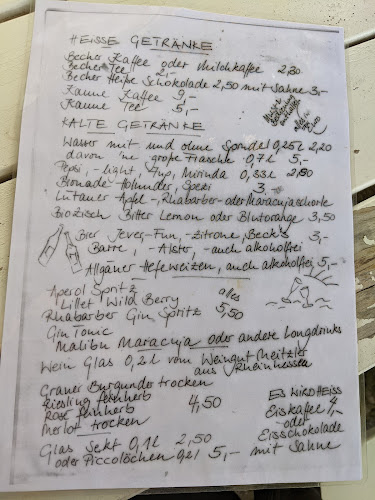 HEISSE GETRÄNKE
Becher Kaffee oder Milchkaffee 2,80
Becher Tee 2,-
Becher Heiße Schokolade 2,50 mit Sahne 3,-
Kanne Kaffee 9,-
Kanne Tee 5,-
KALTE GETRÄNKE
Wasser mit und ohne Sprudel 0,25l 2,20
davon 'ne große Flasche 0,7l 5,-
Pepsi, -light, 7up, Mirinda 0,33l 2,80
Bionade-Holunder, Spezi 3
Lütauer Apfel-, Rhabarber- oder Maracujaschorle
Biozisch Bitter Lemon oder Blutorange 3,50
Bier Jever-Fun, -zitrone, Beck's 3,-
Barre, -Alster, -auch alkoholfrei
Allgäuer Hefeweizen, auch alkoholfrei 5,-
Aperol Spritz
Lillet Wild Berry alles
Rhabarber Gin Spritz 5,50
Gin Tonic
Malibu Maracuja oder andere Longdrinks
Wein Glas 0,2l vom Weingut Meitzler
aus Rheinhessen
Grauer Burgunder trocken
Riesling feinherb
Rosé feinherb 4,50
Merlot trocken
Glas Sekt 0,1l 2,50
oder Piccolöchen 0,2l 5,-
ES WIRD HEISS
Eiskaffee 4,-
oder
Eisschokolade
mit Sahne